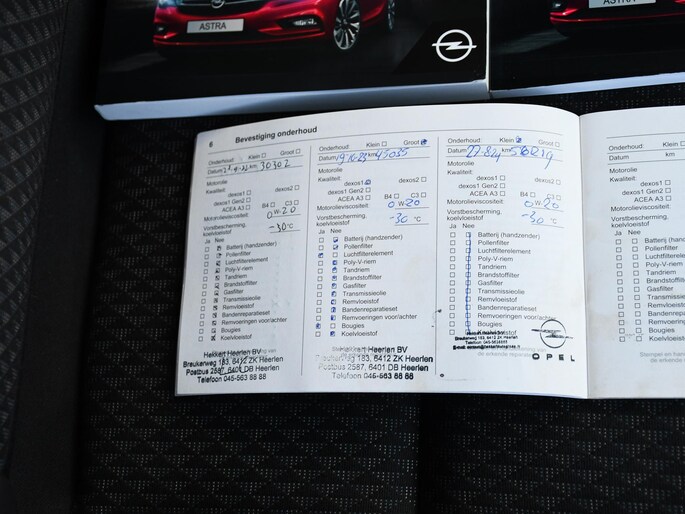 ASTRA
ASTRA
6 Bevestiging onderhoud
Onderhoud: Klein Groot
Datum km 30302
Motorolie
Kwaliteit:
dexos1 dexos2
dexos1 Gen2
ACEA A3 B4 C3
Motorolieviscositeit: 0 W-20
Vorstbescherming, koelvloeistof -30 °C
Ja Nee
Batterij (handzender)
Pollenfilter
Luchtfilterelement
Poly-V-riem
Tandriem
Brandstoffilter
Gasfilter
Transmissieolie
Remvloeistof
Bandenreparatieset
Remvoeringen voor/achter
Bougies
Koelvloeistof
Hekkert Heerlen BV
Breukerweg 183, 6412 ZK Heerlen
Postbus 2587, 6401 DB Heerlen
Telefoon 045-563 88 88
Onderhoud: Klein Groot
Datum 19-10-23 km 45035
Motorolie
Kwaliteit:
dexos1 dexos2
dexos1 Gen2
ACEA A3 B4 C3
Motorolieviscositeit: 0 W-20
Vorstbescherming, koelvloeistof -30 °C
Ja Nee
Batterij (handzender)
Pollenfilter
Luchtfilterelement
Poly-V-riem
Tandriem
Brandstoffilter
Gasfilter
Transmissieolie
Remvloeistof
Bandenreparatieset
Remvoeringen voor/achter
Bougies
Koelvloeistof
Hekkert Heerlen BV
183, 6412 ZK Heerlen
Postbus 2587, 6401 DB Heerlen
Telefoon 045-563 88 88
Onderhoud: Klein Groot
Datum km
Motorolie
Kwaliteit:
dexos1 dexos2
dexos1 Gen2
ACEA A3 B4 C3
Motorolieviscositeit: 0 W-20
Vorstbescherming, koelvloeistof -30 °C
Ja Nee
Batterij (handzender)
Pollenfilter
Luchtfilterelement
Poly-V-riem
Tandriem
Brandstoffilter
Gasfilter
Transmissieolie
Remvloeistof
Bandenreparatieset
Remvoeringen voor/achter
Bougies
Koelvloeistof
OPEL
Onderhoud:
Datum km
Motorolie
Kwaliteit:
dexos1
dexos1 Gen2
ACEA A3
Motorolieviscositeit:
Vorstbescherming, koelvloeistof
Ja Nee
Batterij (handzender)
Pollenfilter
Luchtfilterelement
Poly-V-riem
Tandriem
Brandstoffilter
Gasfilter
Transmissieolie
Remvloeistof
Bandenreparatieset
Remvoeringen
Bougies
Koelvloeistof
Stempel en
de erkende